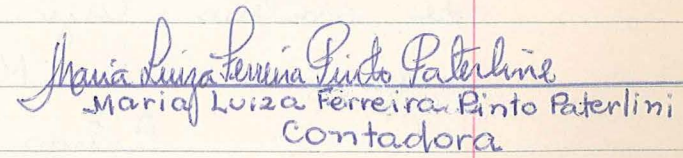 Maria Luiza Ferreira Pinto Paterline
Maria Luiza Ferreira Pinto Paterlini
Contadora